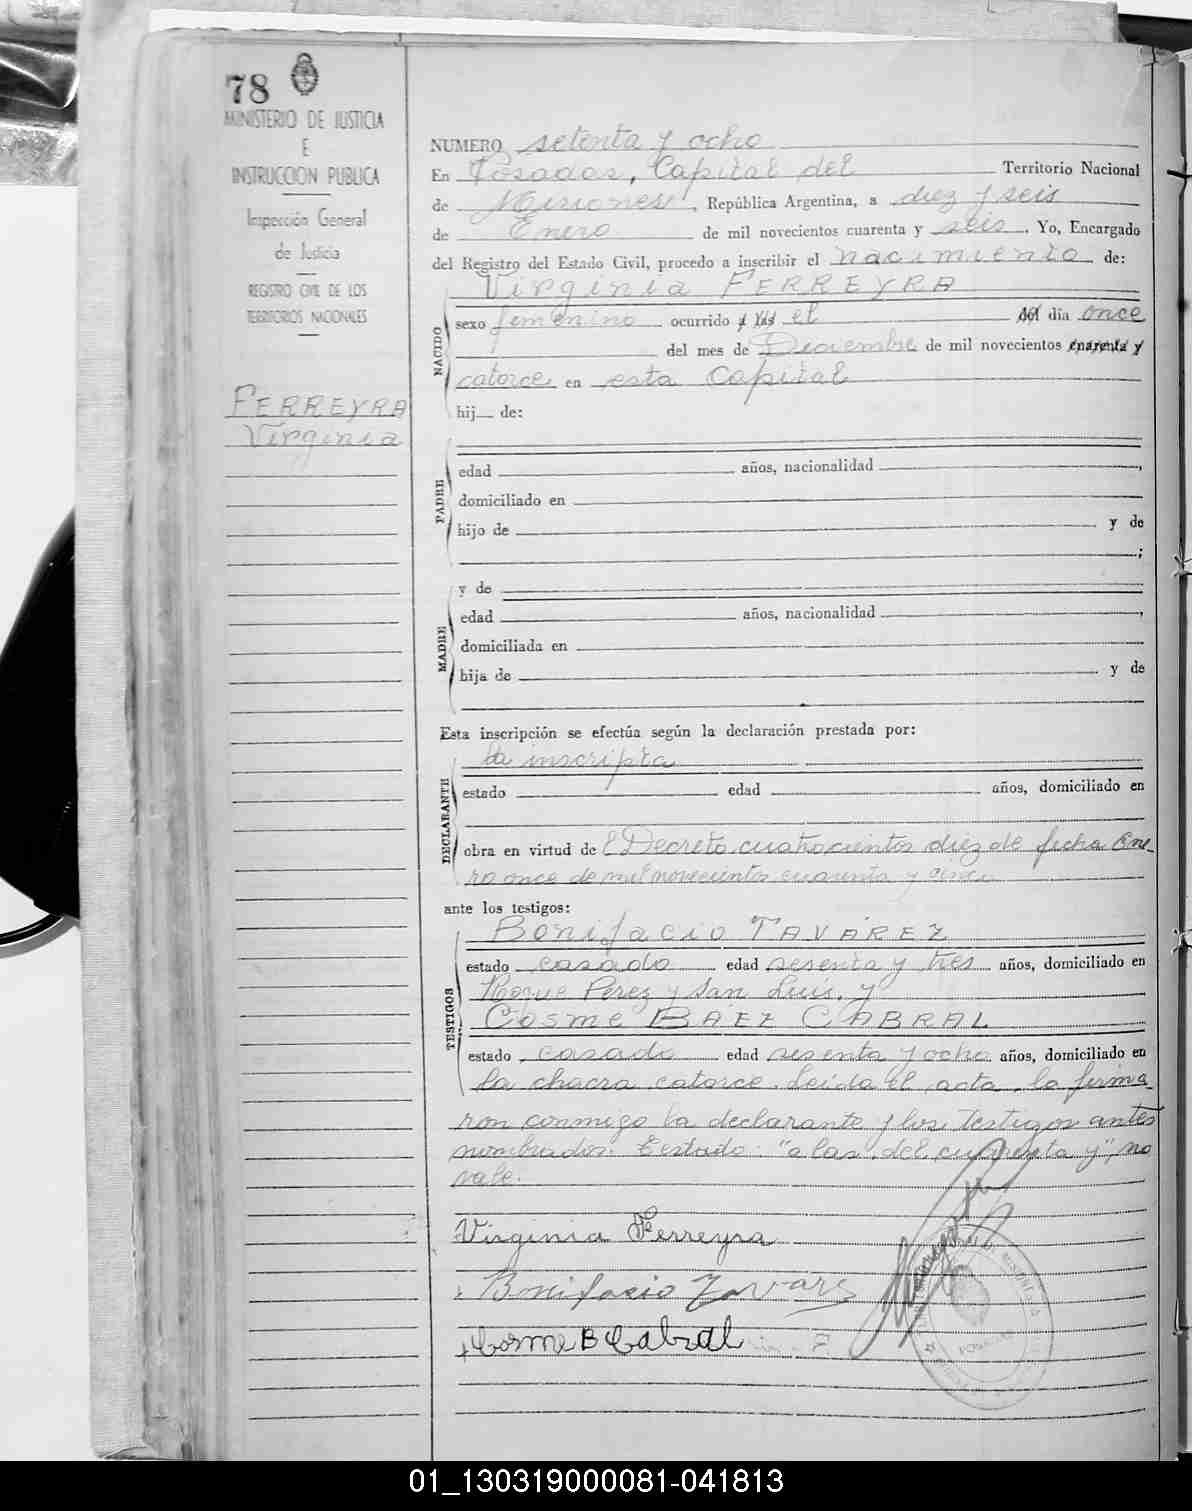 78
MINISTERIO DE JUSTICIA
E
INSTRUCCION PUBLICA
Inspección General
de Justicia
REGISTRO CIVIL DE LOS
TERRITORIOS NACIONALES
FERREYRA
Virginia
NUMERO setenta y ocho
En Posadas, Capital del Territorio Nacional
de Misiones, República Argentina, a diez y seis
de Enero de mil novecientos cuarenta y seis. Yo, Encargado
del Registro del Estado Civil, procedo a inscribir el nacimiento de:
Virginia FERREYRA
NACIDO
sexo femenino ocurrido a las el del día once
del mes de Diciembre de mil novecientos cuarenta y
catorce en esta Capital
hij de:
PADRE
edad años, nacionalidad ,
domiciliado en
hijo de y de
;
MADRE
y de
edad años, nacionalidad ,
domiciliada en
hija de y de
Esta inscripción se efectúa según la declaración prestada por:
DECLARANTE
la inscripta
estado edad años, domiciliado en
obra en virtud de el Decreto cuatrocientos diez de fecha Ene-
ro once de mil novecientos cuarenta y cinco
ante los testigos:
TESTIGOS
Bonifacio TAVÁREZ
estado casado edad sesenta y tres años, domiciliado en
Roque Perez y San Luis, y
Cosme BÁEZ CABRAL
estado casado edad sesenta y ocho años, domiciliado en
la chacra catorce. Leída el acta, la firma-
ron conmigo la declarante y los testigos antes
nombrados. Testado: "a las, del, cuarenta y", no
vale.
Virginia Ferreyra
Bonifacio Tavarez
Cosme B Cabral
01_130319000081-041813